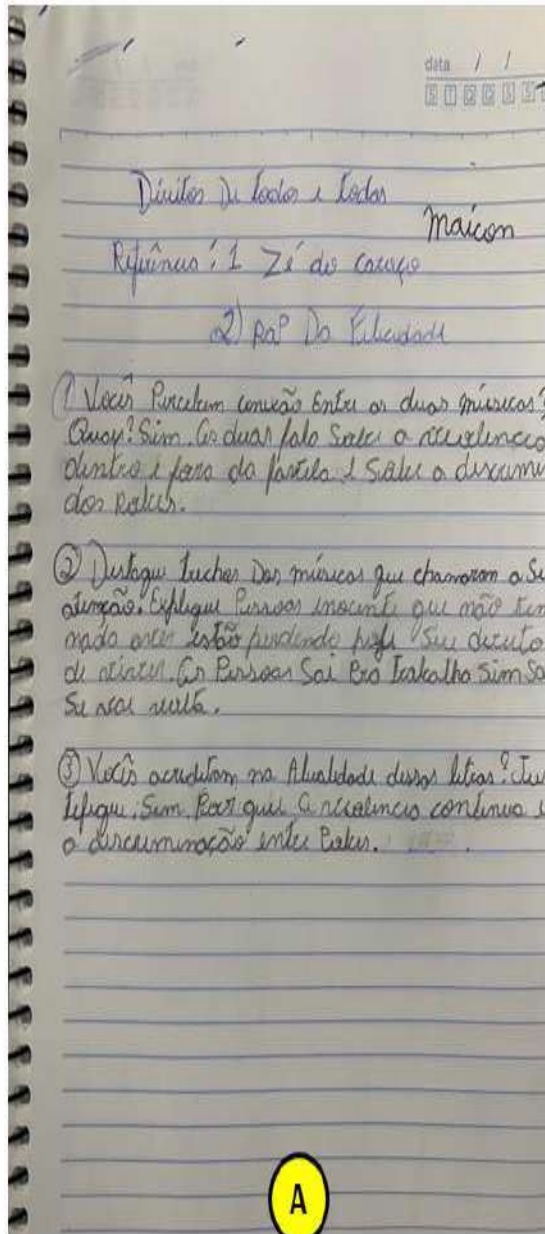 data / /
S T Q Q S S
Direitos De todos e todas
Maicon
Referências: 1 Zé do Caroço
2) Rap Da Felicidade
1 Vocês Percebem conexão Entre as duas músicas?
Quay? Sim. As duas fala Sobre a violencia
dentro e fora da favela e Sobre a discrimi
dos Pobres.
② Destaque trechos Das músicas que chamaram a Su
atenção. Explique Pessoas inocente que não tem
nada aver estão perdendo hoje Seu direito
de viver. As Pessoas Sai Pra Trabalha Sim Sa
Se vai volta.
③ Vocês acreditam na Atualidade dessas letras? Jus
tifique. Sim Por que a violencia continua e
a discriminação entre Pobres.
A